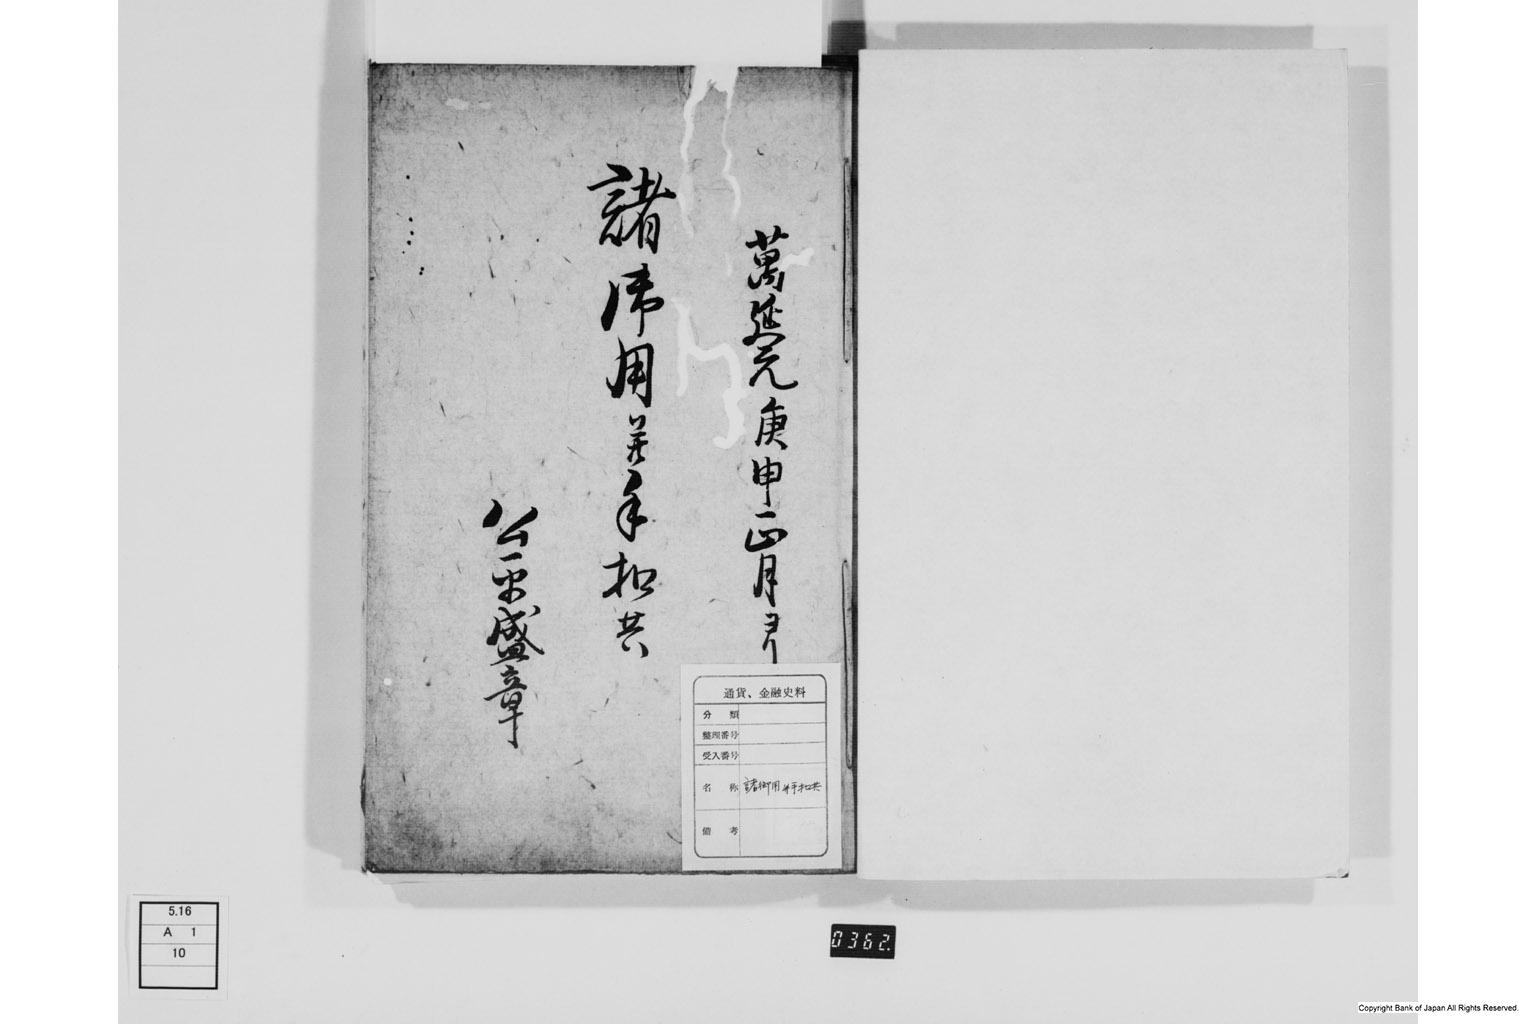 萬延元庚申正月ヨリ
諸御用並手扣共
公平盛章
通貨、金融史料
分類
整理番号
受入番号
名称 諸御用并手扣共
備考
5.16
A 1
10
0362.
Copyright Bank of Japan All Rights Reserved.